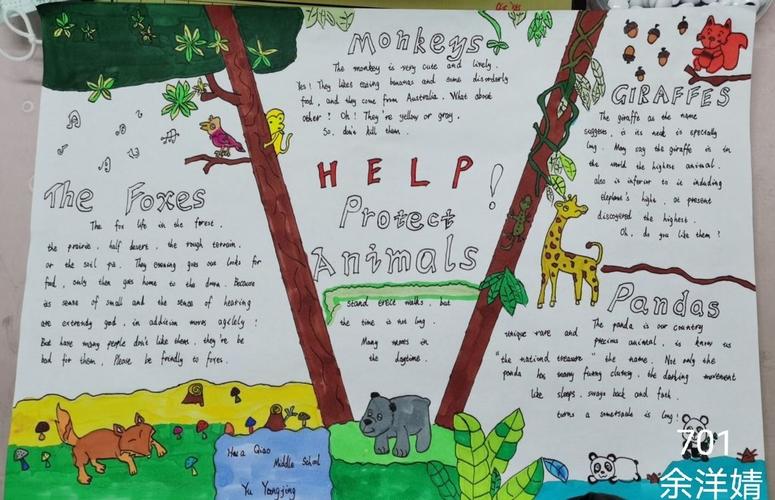 Monkeys
The monkey is very cute and lively.
Yes! They likes eating bananas and some disorderly
food, and they come from Australia. What about
other? Oh! They're yellow or gray.
So, don't kill them.
HELP!
Protect
Animals
stand erect walks, but
the time is not long.
Many moves in
the daytime.
The Foxes
The fox life in the forest,
the prairie, half desert, the rough terrain,
or the soil pa. They evening goes out looks for
food, only then goes home to the dawn. Because
its sense of small and the sense of hearing
are extremely god, in addition moves agilely!
But have many people don't like them, they're be
bad for them, Please be frindly to foxes.
GIRAFFES
The giraffe as the name
suggess, is its neck is especially
long. Many say the giraffe is in
the world the highest animal.
also is inferior to is including
elephane's hight, at present
discovered the highest.
Oh, do you like them?
Pandas
The panda is our country
unique rare and precious animal, is know as
"the nationd treasure" the name. Not only the
panda has many funny clumsy, the darling movement
like sleeps, swags back and forth,
turns a somersaule is long!
Hua Qiao
Middle School
Yu Yangjing
701
余洋婧